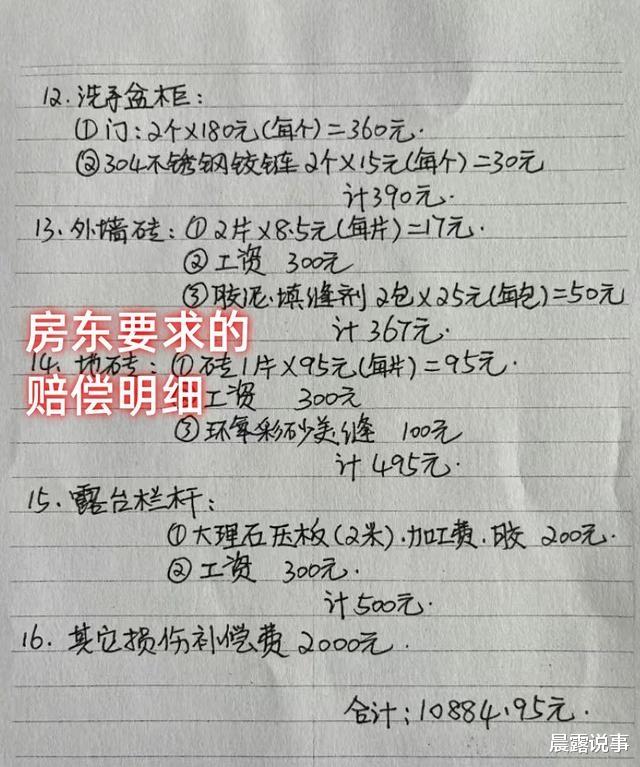 12.洗手盆柜:
①门:2个×180元(每个)=360元.
②304不锈钢铰链 2个×15元(每个)=30元
计390元.
13.外墙砖:①2片×8.5元(每片)=17元.
②工资 300元
③胶泥.填缝剂 2包×25元(每包)=50元
计367元.
房东要求的
14.地砖:①砖1片×95元(每片)=95元.
赔偿明细
工资 300元
③环氧彩砂美缝 100元
计495元.
15.露台栏杆:
①大理石压板(2米).加工费.胶 200元.
②工资 300元.
计500元.
16.其它损伤补偿费2000元.
合计:10884.95元.
晨露说事